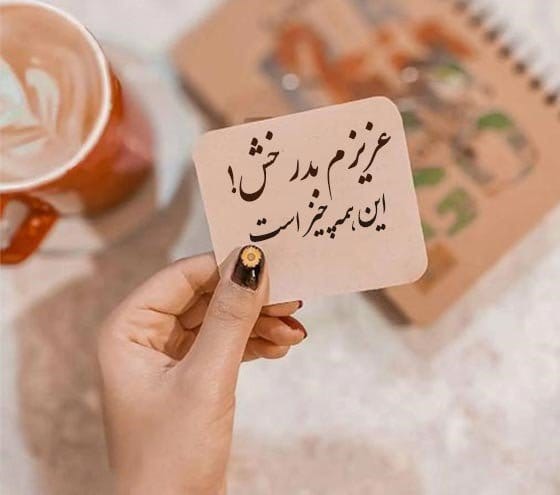 عزیزم بدرخش!
این همه چیز است